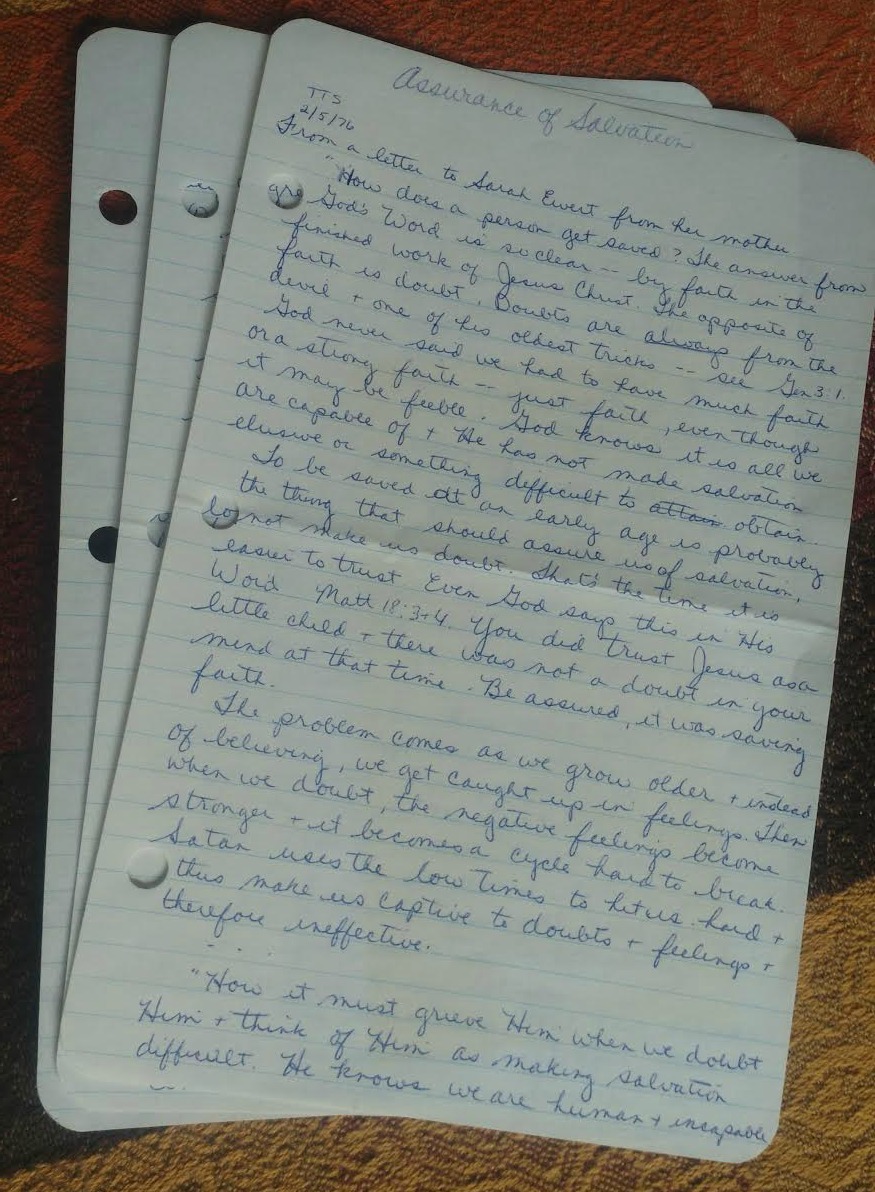 Assurance of Salvation
TTS
2/5/76
From a letter to Sarah Ewert from her mother
"How does a person get saved? The answer from
God's Word is so clear -- by faith in the
finished work of Jesus Christ. The opposite of
faith is doubt. Doubts are always from the
devil + one of his oldest tricks -- see Gen 3:1.
God never said we had to have much faith
or a strong faith -- just faith, even though
it may be feeble. God knows it is all we
are capable of + He has not made salvation
elusive or something difficult to attain obtain.
To be saved at an early age is probably
the thing that should assure us of salvation,
not make us doubt. That's the time it is
easier to trust. Even God says this in His
Word Matt 18:3+4. You did trust Jesus as a
little child + there was not a doubt in your
mind at that time. Be assured, it was saving
faith.
The problem comes as we grow older + instead
of believing, we get caught up in feelings. Then
when we doubt, the negative feelings become
stronger + it becomes a cycle hard to break.
Satan uses the low times to hit us hard +
thus make us captive to doubts + feelings +
therefore ineffective.
...
"How it must grieve Him when we doubt
Him + think of Him as making salvation
difficult. He knows we are human + incapable